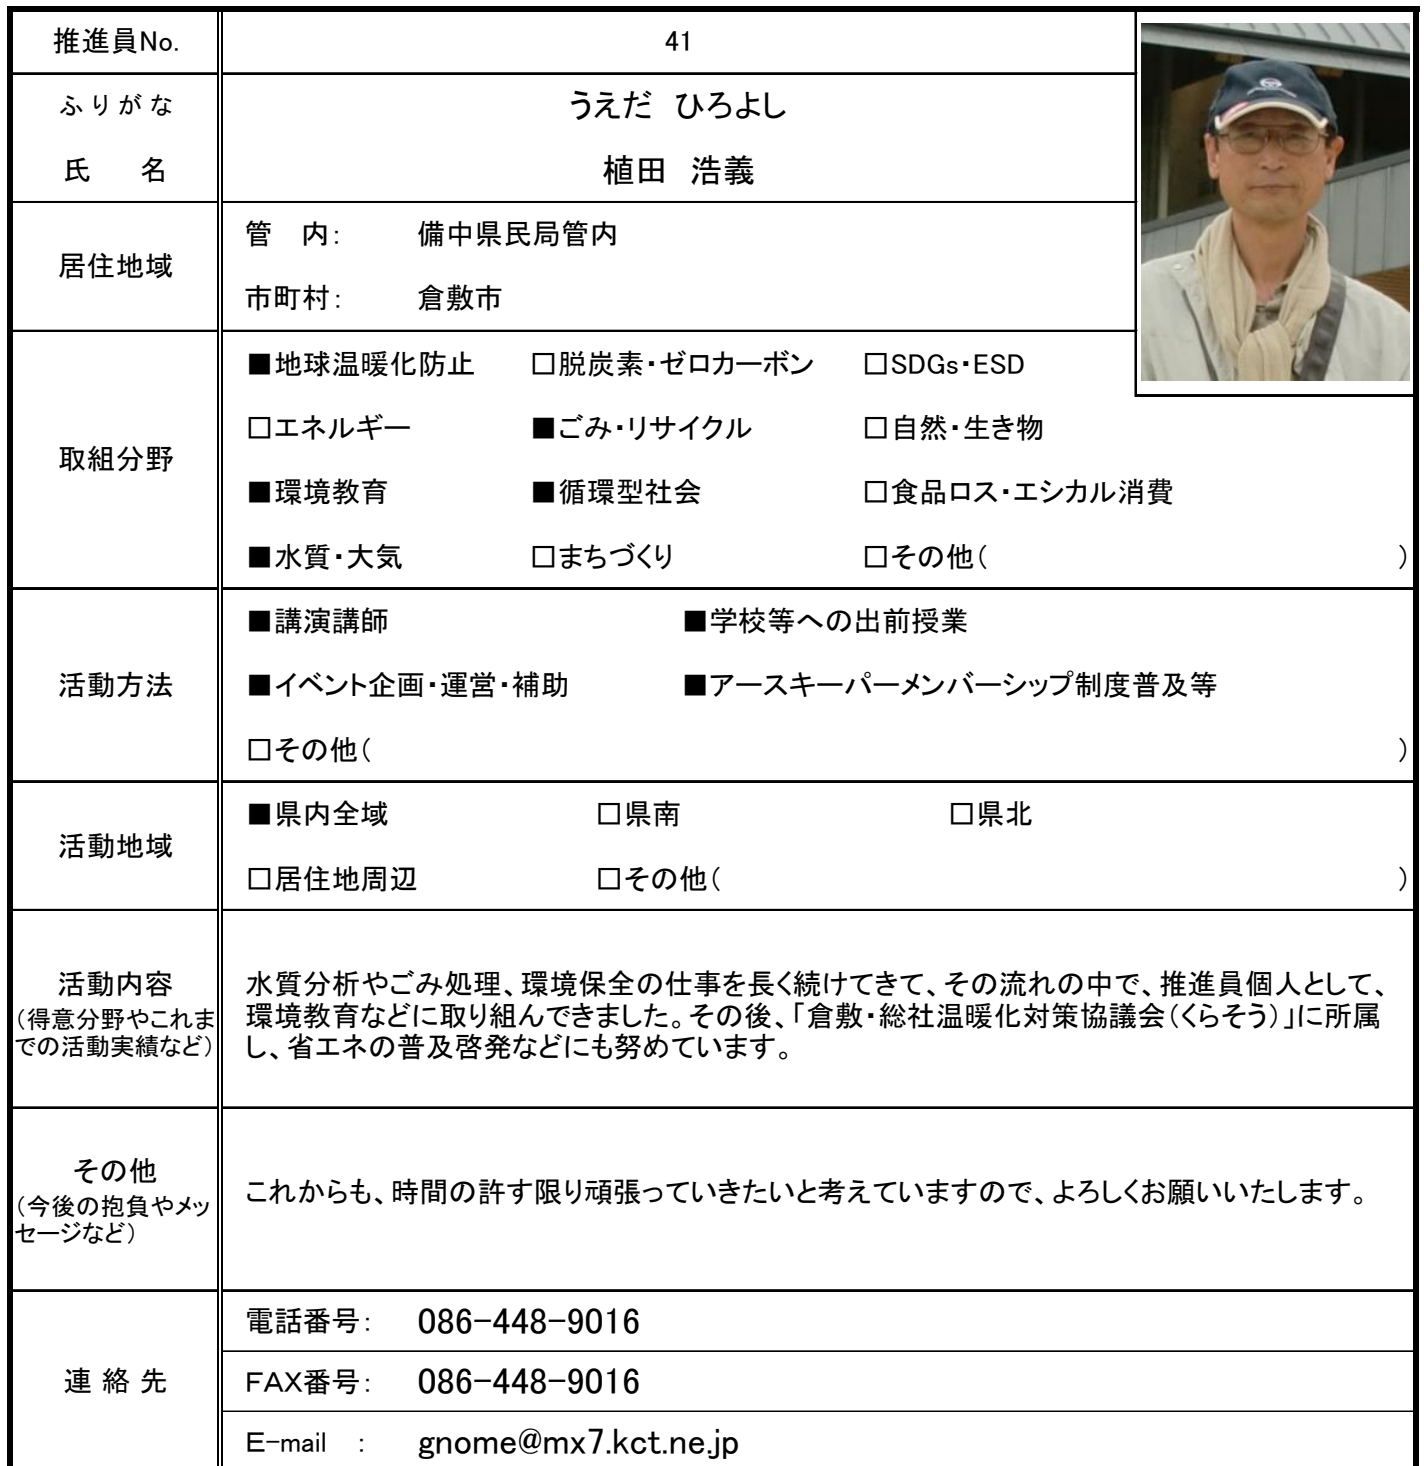 推進員No. 41
ふりがな うえだ ひろよし
氏 名 植田 浩義
居住地域
管 内: 備中県民局管内
市町村: 倉敷市
取組分野
■地球温暖化防止 □脱炭素・ゼロカーボン □SDGs・ESD
□エネルギー ■ごみ・リサイクル □自然・生き物
■環境教育 ■循環型社会 □食品ロス・エシカル消費
■水質・大気 □まちづくり □その他( )
活動方法
■講演講師 ■学校等への出前授業
■イベント企画・運営・補助 ■アースキーパーメンバーシップ制度普及等
□その他( )
活動地域
■県内全域 □県南 □県北
□居住地周辺 □その他( )
活動内容
(得意分野やこれま
での活動実績など)
水質分析やごみ処理、環境保全の仕事を長く続けてきて、その流れの中で、推進員個人として、
環境教育などに取り組んできました。その後、「倉敷・総社温暖化対策協議会(くらそう)」に所属
し、省エネの普及啓発などにも努めています。
その他
(今後の抱負やメッ
セージなど)
これからも、時間の許す限り頑張っていきたいと考えていますので、よろしくお願いいたします。
連絡先
電話番号: 086-448-9016
FAX番号: 086-448-9016
E-mail : gnome@mx7.kct.ne.jp